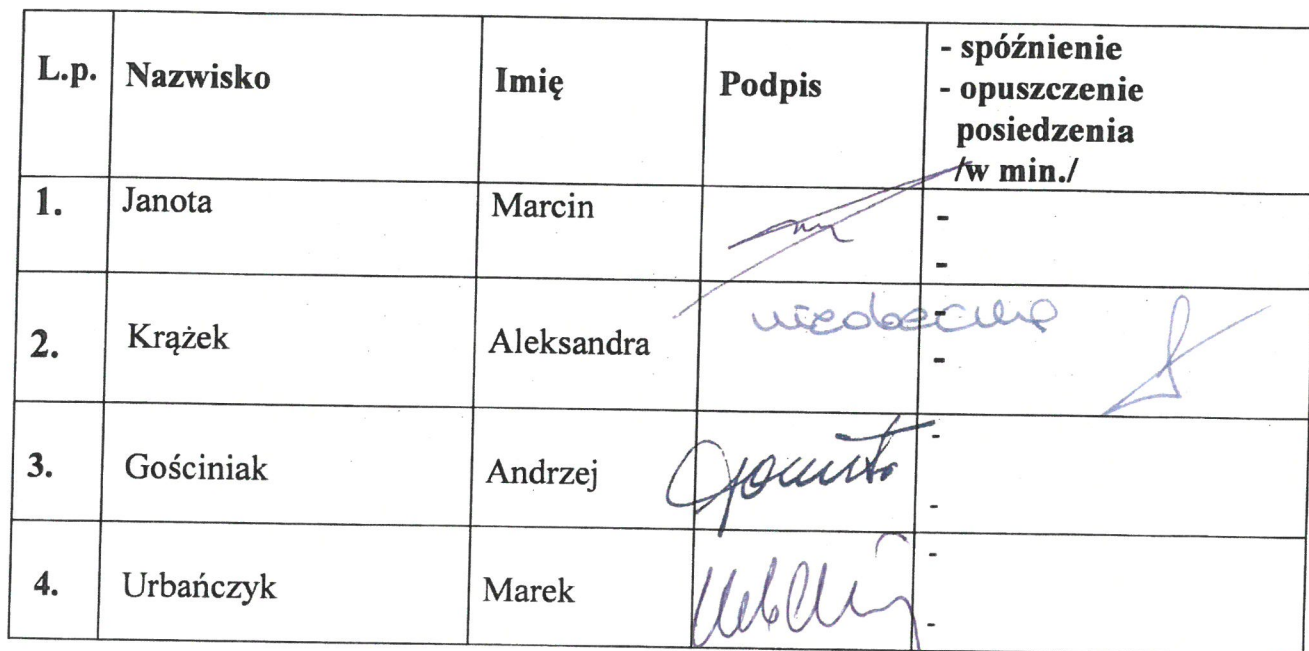 L.p. Nazwisko Imię Podpis - spóźnienie
- opuszczenie
posiedzenia
/w min./
1. Janota Marcin -
-
2. Krążek Aleksandra nieobecna -
-
3. Gościniak Andrzej -
-
4. Urbańczyk Marek -
-